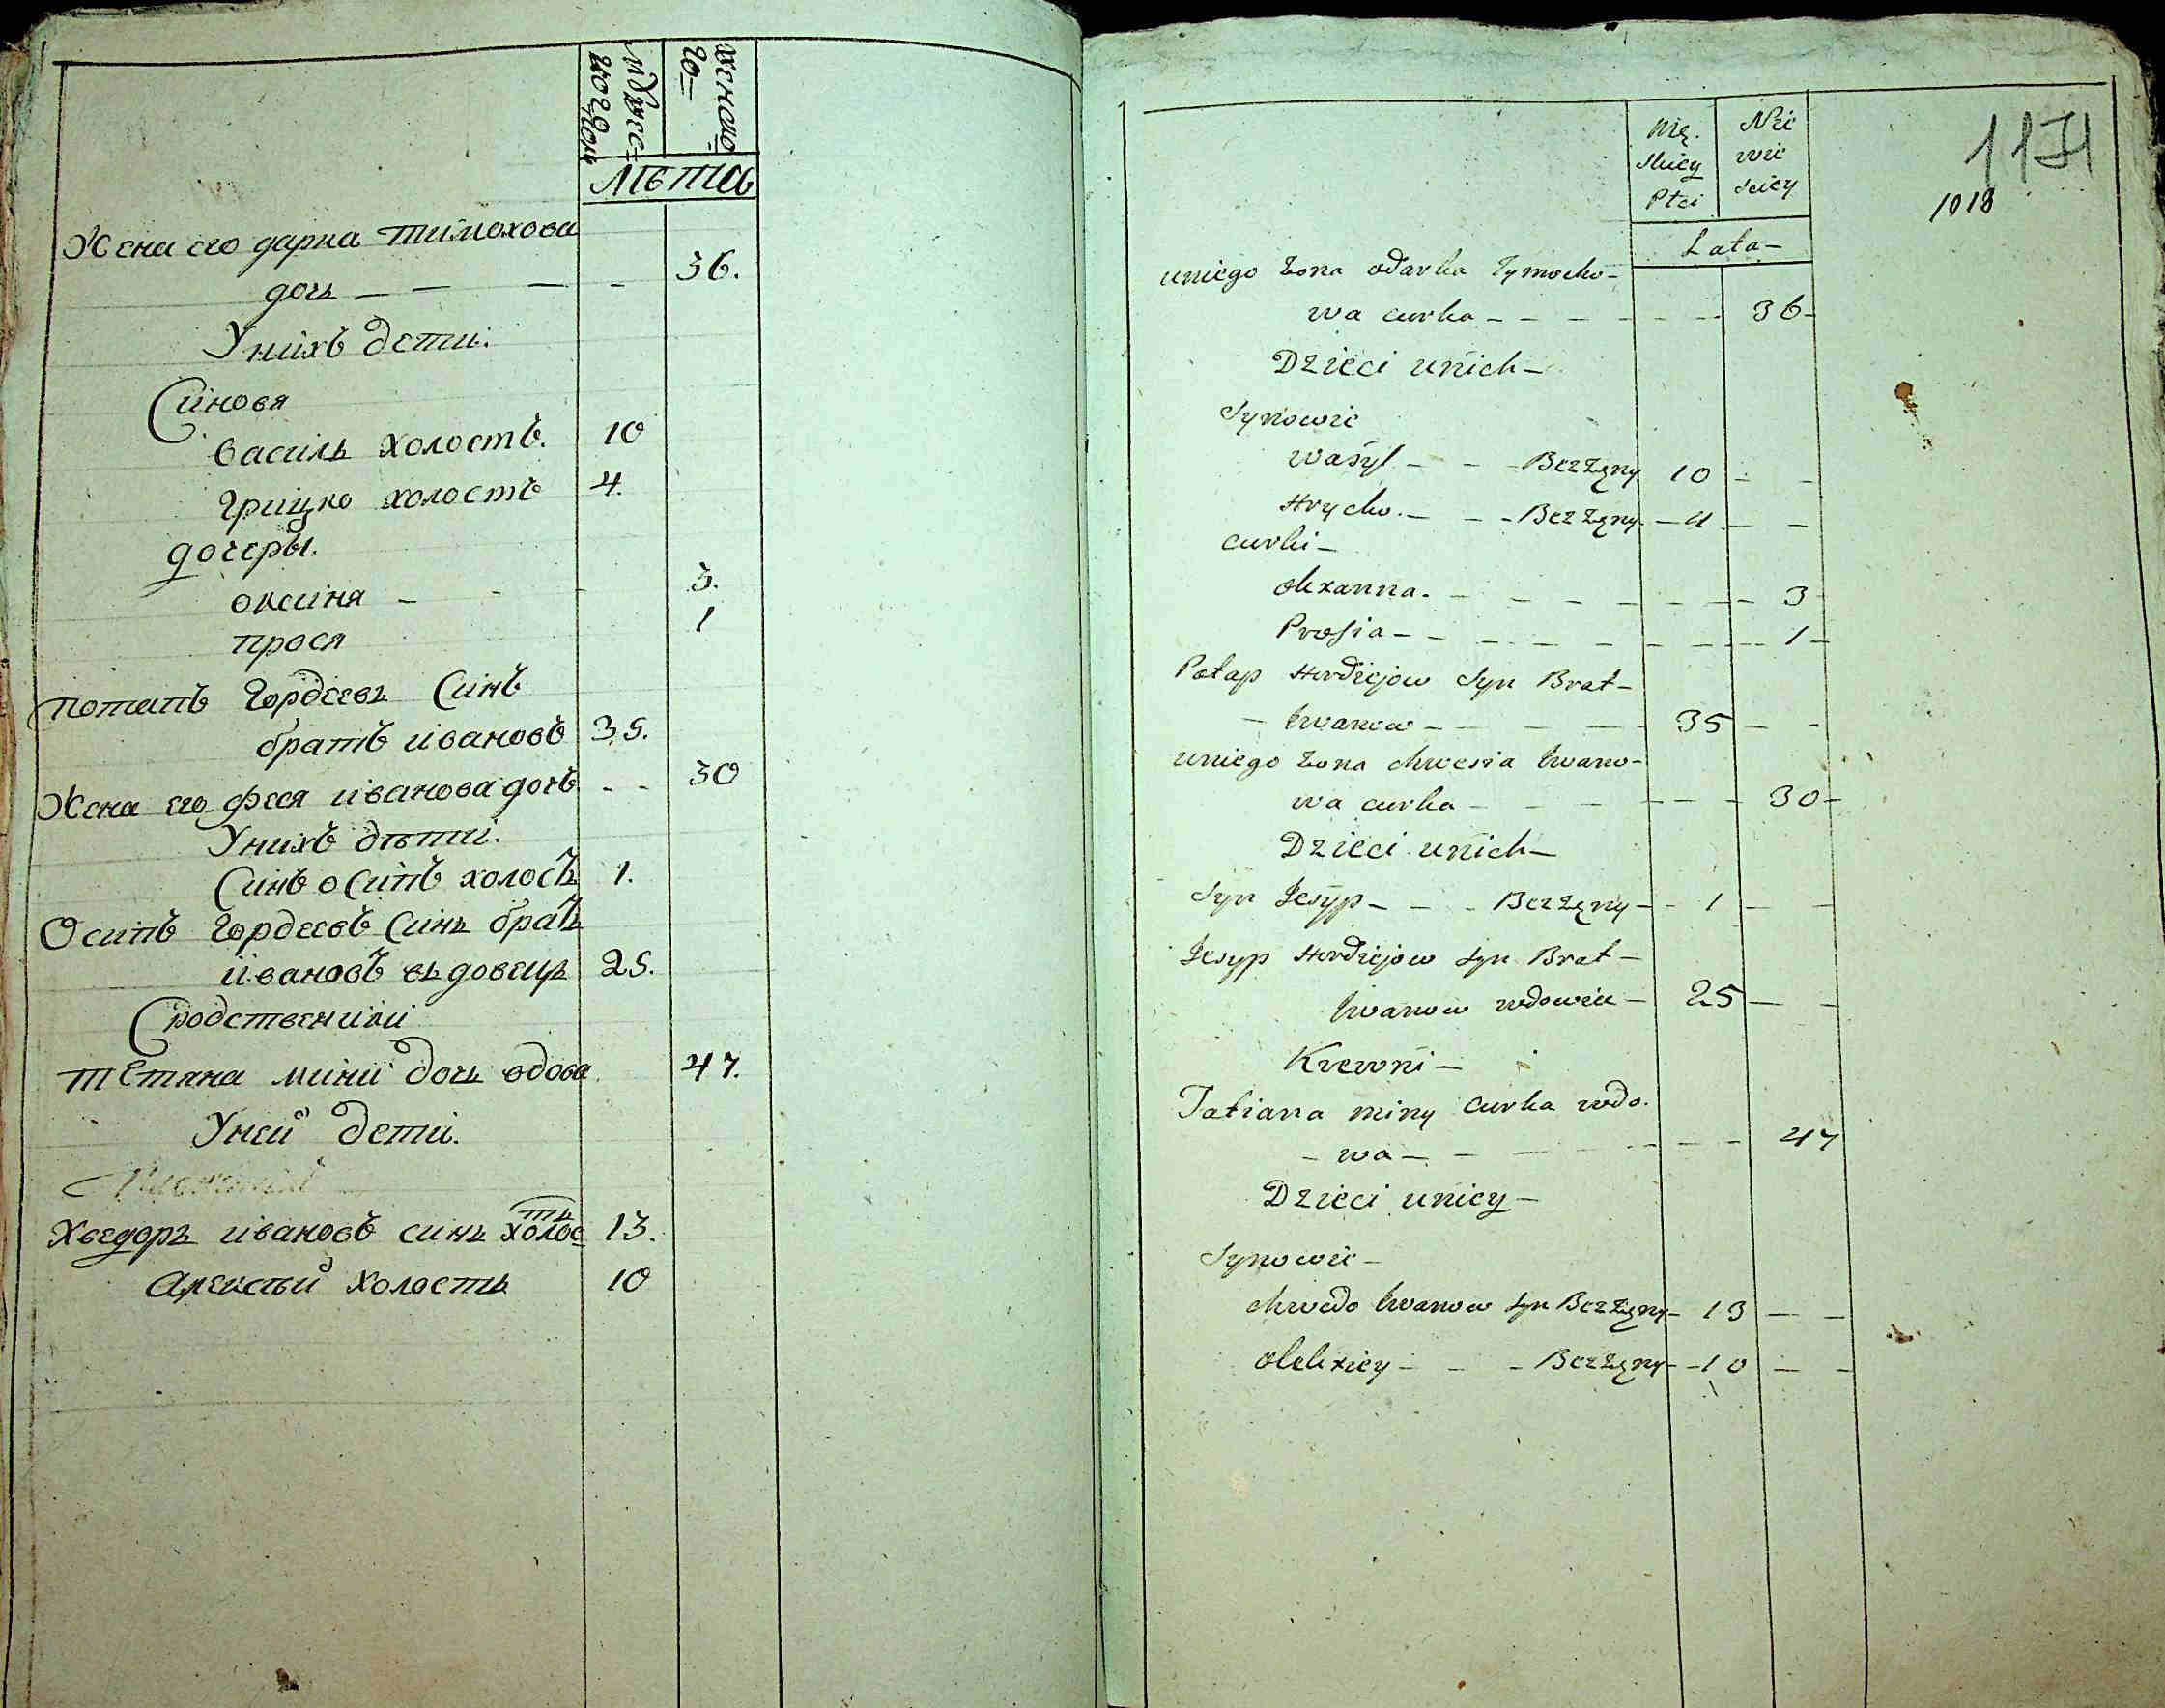 мужес-
кого пол
женско
го
лѣта
Жена его дарка тимохова
дочь — — — - 36.
Унихъ дети.
Синовя
василь холостъ. 10
грицко холостъ 4.
дочеры.
оксиня - - - 3.
прося 1
потапъ Гордеевъ Синъ
братъ ивановъ 35.
Жена его феся иванова дочъ - - 30
Унихъ дѣти.
Синъ осипъ холостъ 1.
Осипъ Гордеевъ Синъ братъ
ивановъ вдовецъ 25.
Сродственики
тетяна мини дочь вдова 47.
Уней дети.
Хведоръ ивановъ синъ холостъ 13.
Алексѣй холостъ 10
Mę.
skiey
Płci
Nie
wie
sciey
1171
1018
Lata —
uniego żona odarka Tymocho-
wa curka - - - - - - 36-
Dzieci unich —
Synowie
wasyl - - - Bezżęny 10 - -
Hrycko. - - - Bezżęny. - 4 - -
curki —
okxanna. - - - - - - - 3
Prosia - - - - - - - - 1 -
Potap Hordiejow Syn Brat -
- Iwanow - - - - 35 - -
uniego żona chwesia Iwano-
wa curka - - - - - - 30 -
Dzieci unich —
Syn Jesyp - - - Bezżęny - - 1 - -
Jesyp Hordiejow syn Brat —
Iwanow wdowiec — 25 — -
Krewni —
Tatiana miny curka wdo.
- wa - - - - - - 47
Dzieci unicy —
Synowie —
chwedo Iwanow syn Bezżęny - 13 — -
olekxiey - - - Bezżęny - -10 — -